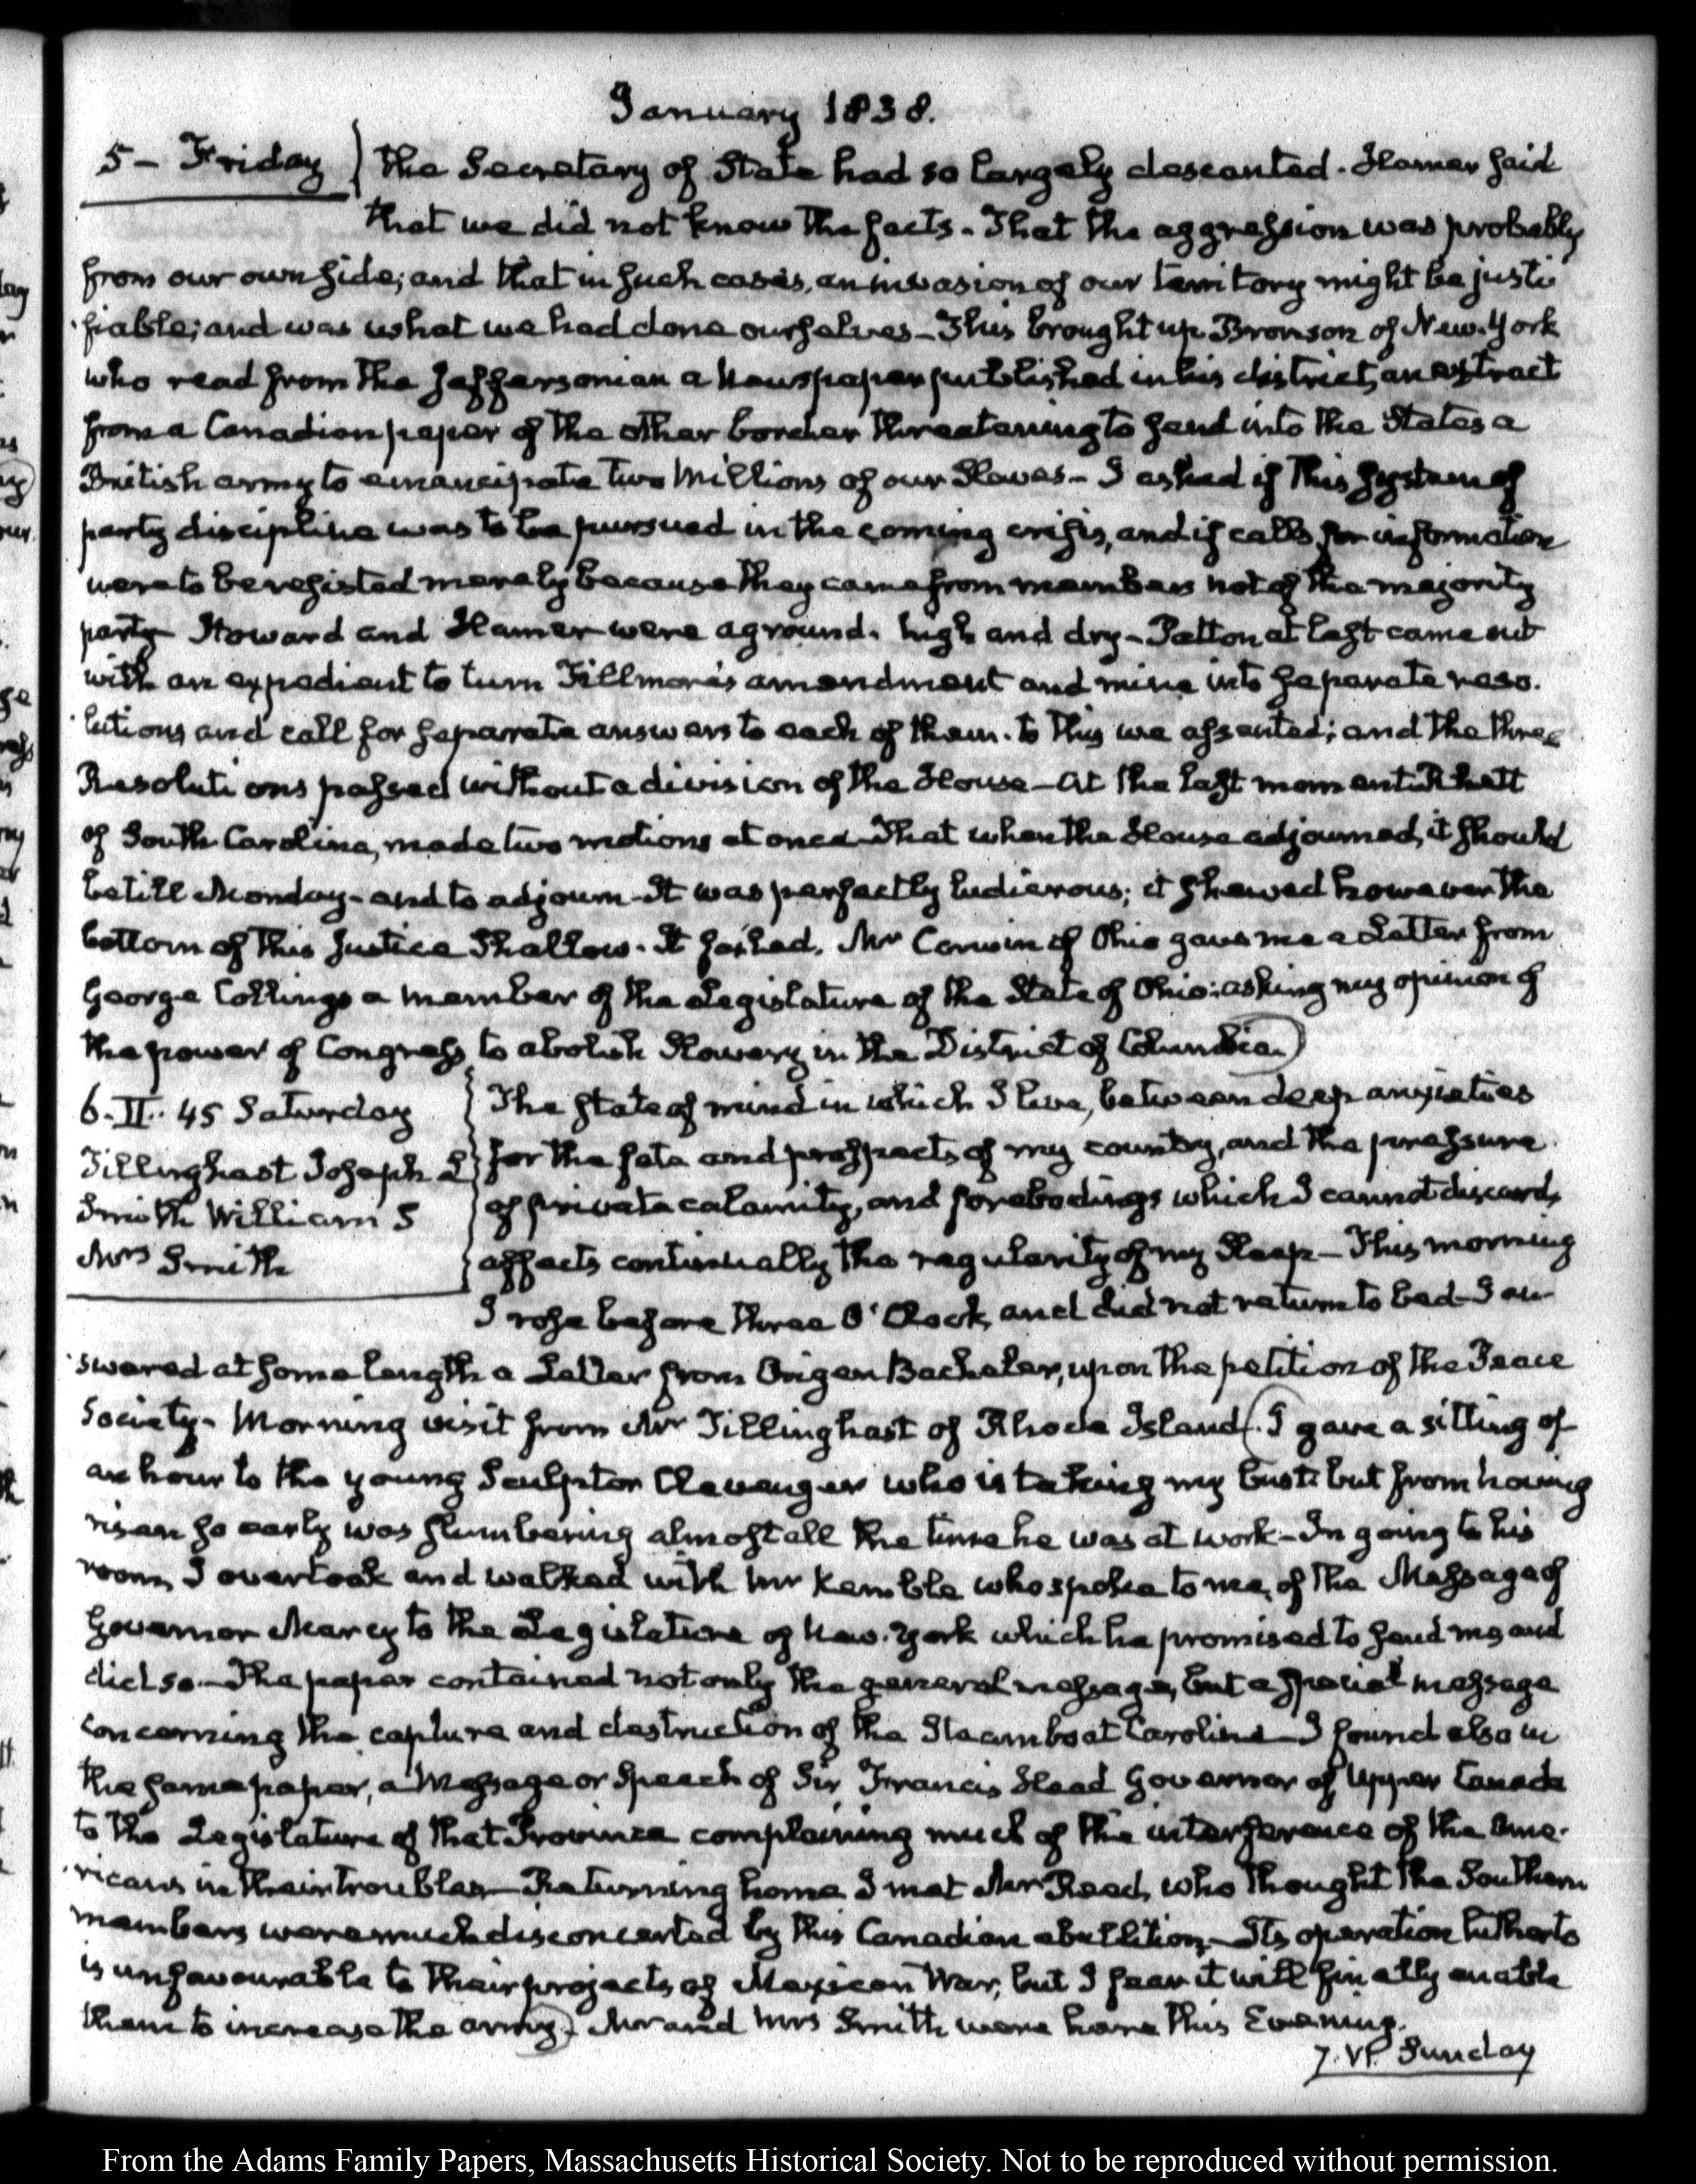 January 1838.
5 - Friday } the Secretary of State had so largely descanted. Hamer said
that we did not know the facts - That the aggression was probably
from our own side; and that in such cases, an invasion of our territory might be justi
fiable; and was what we had done ourselves - This brought up Bronson of New. York
who read from the Jeffersonian a Newspaper published in his district, an extract
from a Canadian paper of the other border threatening to send into the States a
British army to emancipate two Millions of our Slaves - I asked if this system of
party discipline was to be pursued in the coming crisis, and if calls for information
were to be resisted merely because they came from members not of the majority
party - Howard and Hamer were aground. high and dry - Patton at last came out
with an expedient to turn Fillmore's amendment and mine into separate reso-
lutions and call for separate answers to each of them. to this we assented; and the three
Resolutions passed without a division of the House - At the last moment Rhett
of South Carolina, made two motions at once - That when the House adjourned, it should
be till Monday - and to adjourn - It was perfectly ludicrous; it shewed however the
bottom of this Justice Shallow. It failed. Mr Corwin of Ohio gave me a Letter from
George Collings a member of the Legislature of the State of Ohio: asking my opinion of
the power of Congress, to abolish Slavery in the District of Columbia.)
6. II.. 45 Saturday } The state of mind in which I live, between deep anxieties
Tillinghast Joseph L } for the fate and prospects of my country, and the pressure
Smith William S } of private calamity, and forebodings which I cannot discard,
Mrs Smith } affects continually the regularity of my Sleep - This morning
I rose before three O'Clock, and did not return to bed - I an-
swered at some length a Letter from Origen Bacheler, upon the petition of the Peace
Society - Morning visit from Mr Tillinghast of Rhode Island (. I gave a sitting of
an hour to the young Sculptor Clevenger who is taking my bust: but from having
risen so early was slumbering almost all the time he was at work - In going to his
room, I overtook and walked with Mr Kemble who spoke to me, of the Message of
Governor Marcy to the Legislature of New. York which he promised to send me and
did so. - The paper contained not only the general message, but a special message
concerning the capture and destruction of the Steamboat Caroline - I found also in
the same paper, a Message or Speech of Sir Francis Head Governor of Upper Canada
to the Legislature of that Province complaining much of the interference of the Ame-
ricans in their troubles - Returning home I met Mr Reed, who thought the Southern
members were much disconcerted by this Canadian ebullition - Its operation hitherto
is unfavourable to their projects of Mexican War, but I fear it will finally enable
them to increase the army.) Mr and Mrs Smith were here this Evening.
7. VI. Sunday
From the Adams Family Papers, Massachusetts Historical Society. Not to be reproduced without permission.